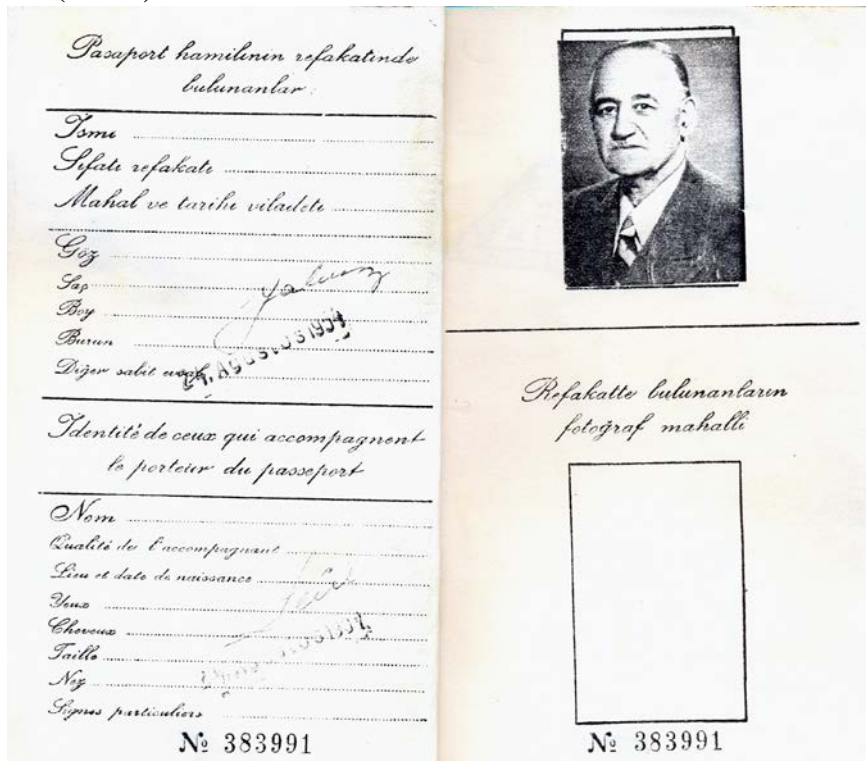 Pasaport hamilinin refakatinde
bulunanlar :
İsmi
Sıfatı refakati
Mahal ve tarihi viladeti
Göz
Saç
Boy
Burun
Diğer sabit evsaf
Yalnız
24. AĞUSTOS 1954
Identité de ceux qui accompagnent
le porteur du passeport
Nom
Qualité de l'accompagnant
Lieu et date de naissance
Yeux
Cheveux
Taille
Nez
Signes particuliers
Seul
№ 383991
Refakatte bulunanların
fotoğraf mahalli
№ 383991